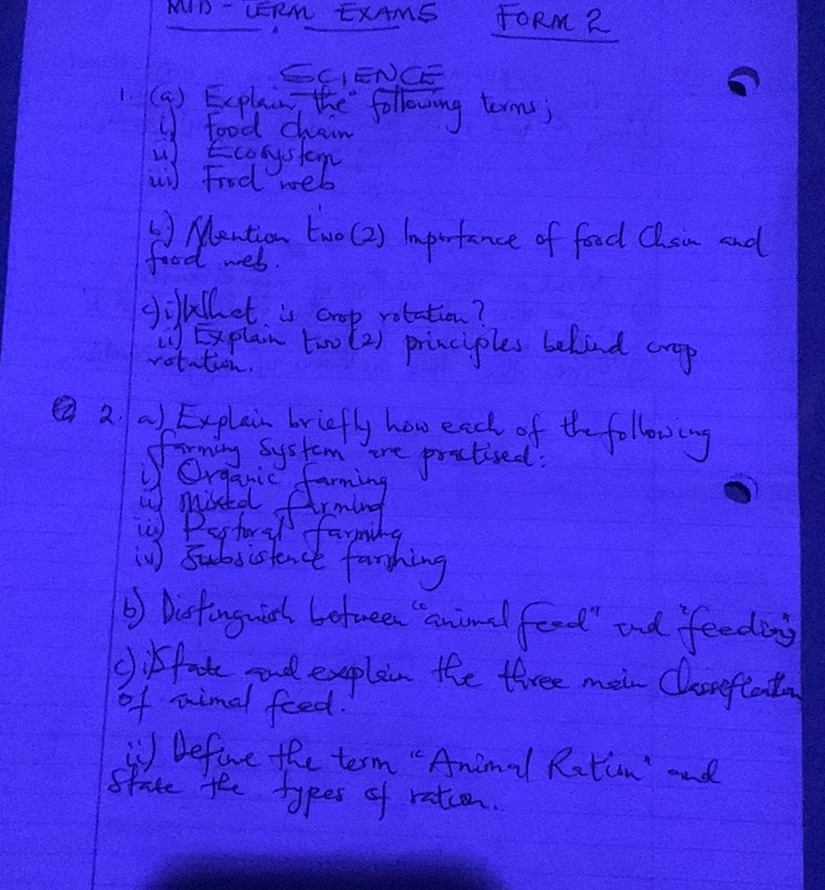 MID-TERM EXAMS FORM 2
SCIENCE
1. (a) Explain the following terms;
i) food chain
ii) Ecosystem
iii) Food web
b) Mention two (2) Importance of food Chain and
food web.
c) i) What is crop rotation?
ii) Explain two (2) principles behind crop
rotation.
2. a) Explain briefly how each of the following
farming System are practised:
i) Organic farming
ii) Mixed farming
iii) Pastoral farming
iv) Subsistence farming
b) Distinguish between "animal feed" and "feeding"
c) i) State and explain the three main Classification
of animal feed.
ii) Define the term "Animal Ration" and
State the types of ration..